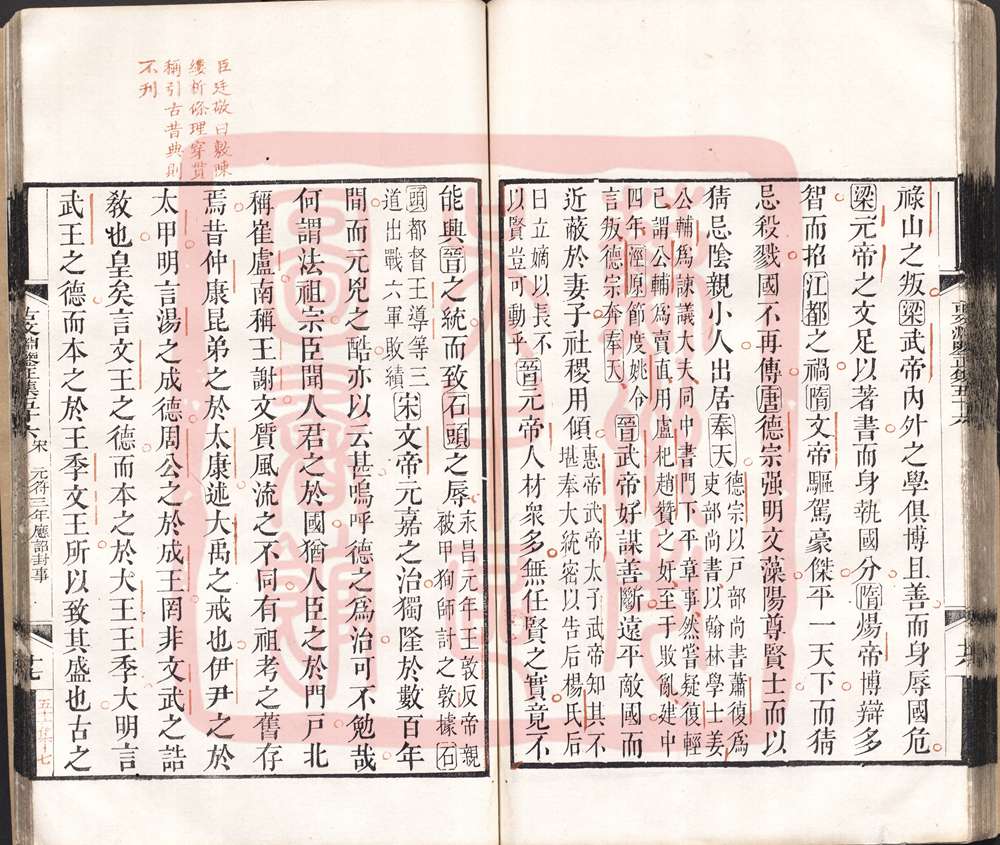 祿山之叛梁武帝內外之學俱博且善而身辱國危
梁元帝之文足以著書而身執國分隋煬帝博辯多
智而招江都之禍隋文帝驅駕豪傑平一天下而猜
忌殺戮國不再傳唐德宗强明文藻陽尊賢士而以
猜忌陰親小人出居奉天
德宗以戸部尚書蕭復爲
吏部尚書以翰林學士姜
公輔爲諫議大夫同中書門下平章事然嘗疑復輕
己謂公輔爲賣直用盧杞趙贊之奸至于敗亂建中
四年涇原節度姚令
言叛德宗奔奉天
晉武帝好謀善斷遠平敵國而
近蔽於妻子社稷用傾
惠帝武帝太子武帝知其不
堪奉大統密以告后楊氏后
曰立嫡以長不
以賢豈可動乎
晉元帝人材衆多無任賢之實竟不
能興晉之統而致石頭之辱
永昌元年王敦反帝親
被甲狥師討之敦據石
頭都督王導等三
道出戰六軍敗績
宋文帝元嘉之治獨隆於數百年
間而元兇之酷亦以云甚嗚呼德之爲治可不勉哉
何謂法祖宗臣聞人君之於國猶人臣之於門戸北
稱崔盧南稱王謝文質風流之不同有祖考之舊存
焉昔仲康昆弟之於太康述大禹之戒也伊尹之於
太甲明言湯之成德周公之於成王罔非文武之誥
敎也皇矣言文王之德而本之於大王王季大明言
武王之德而本之於王季文王所以致其盛也古之
臣廷敬曰敷陳
縷析條理穿貫
稱引古昔典則
不刋
宋 元符三年應詔封事